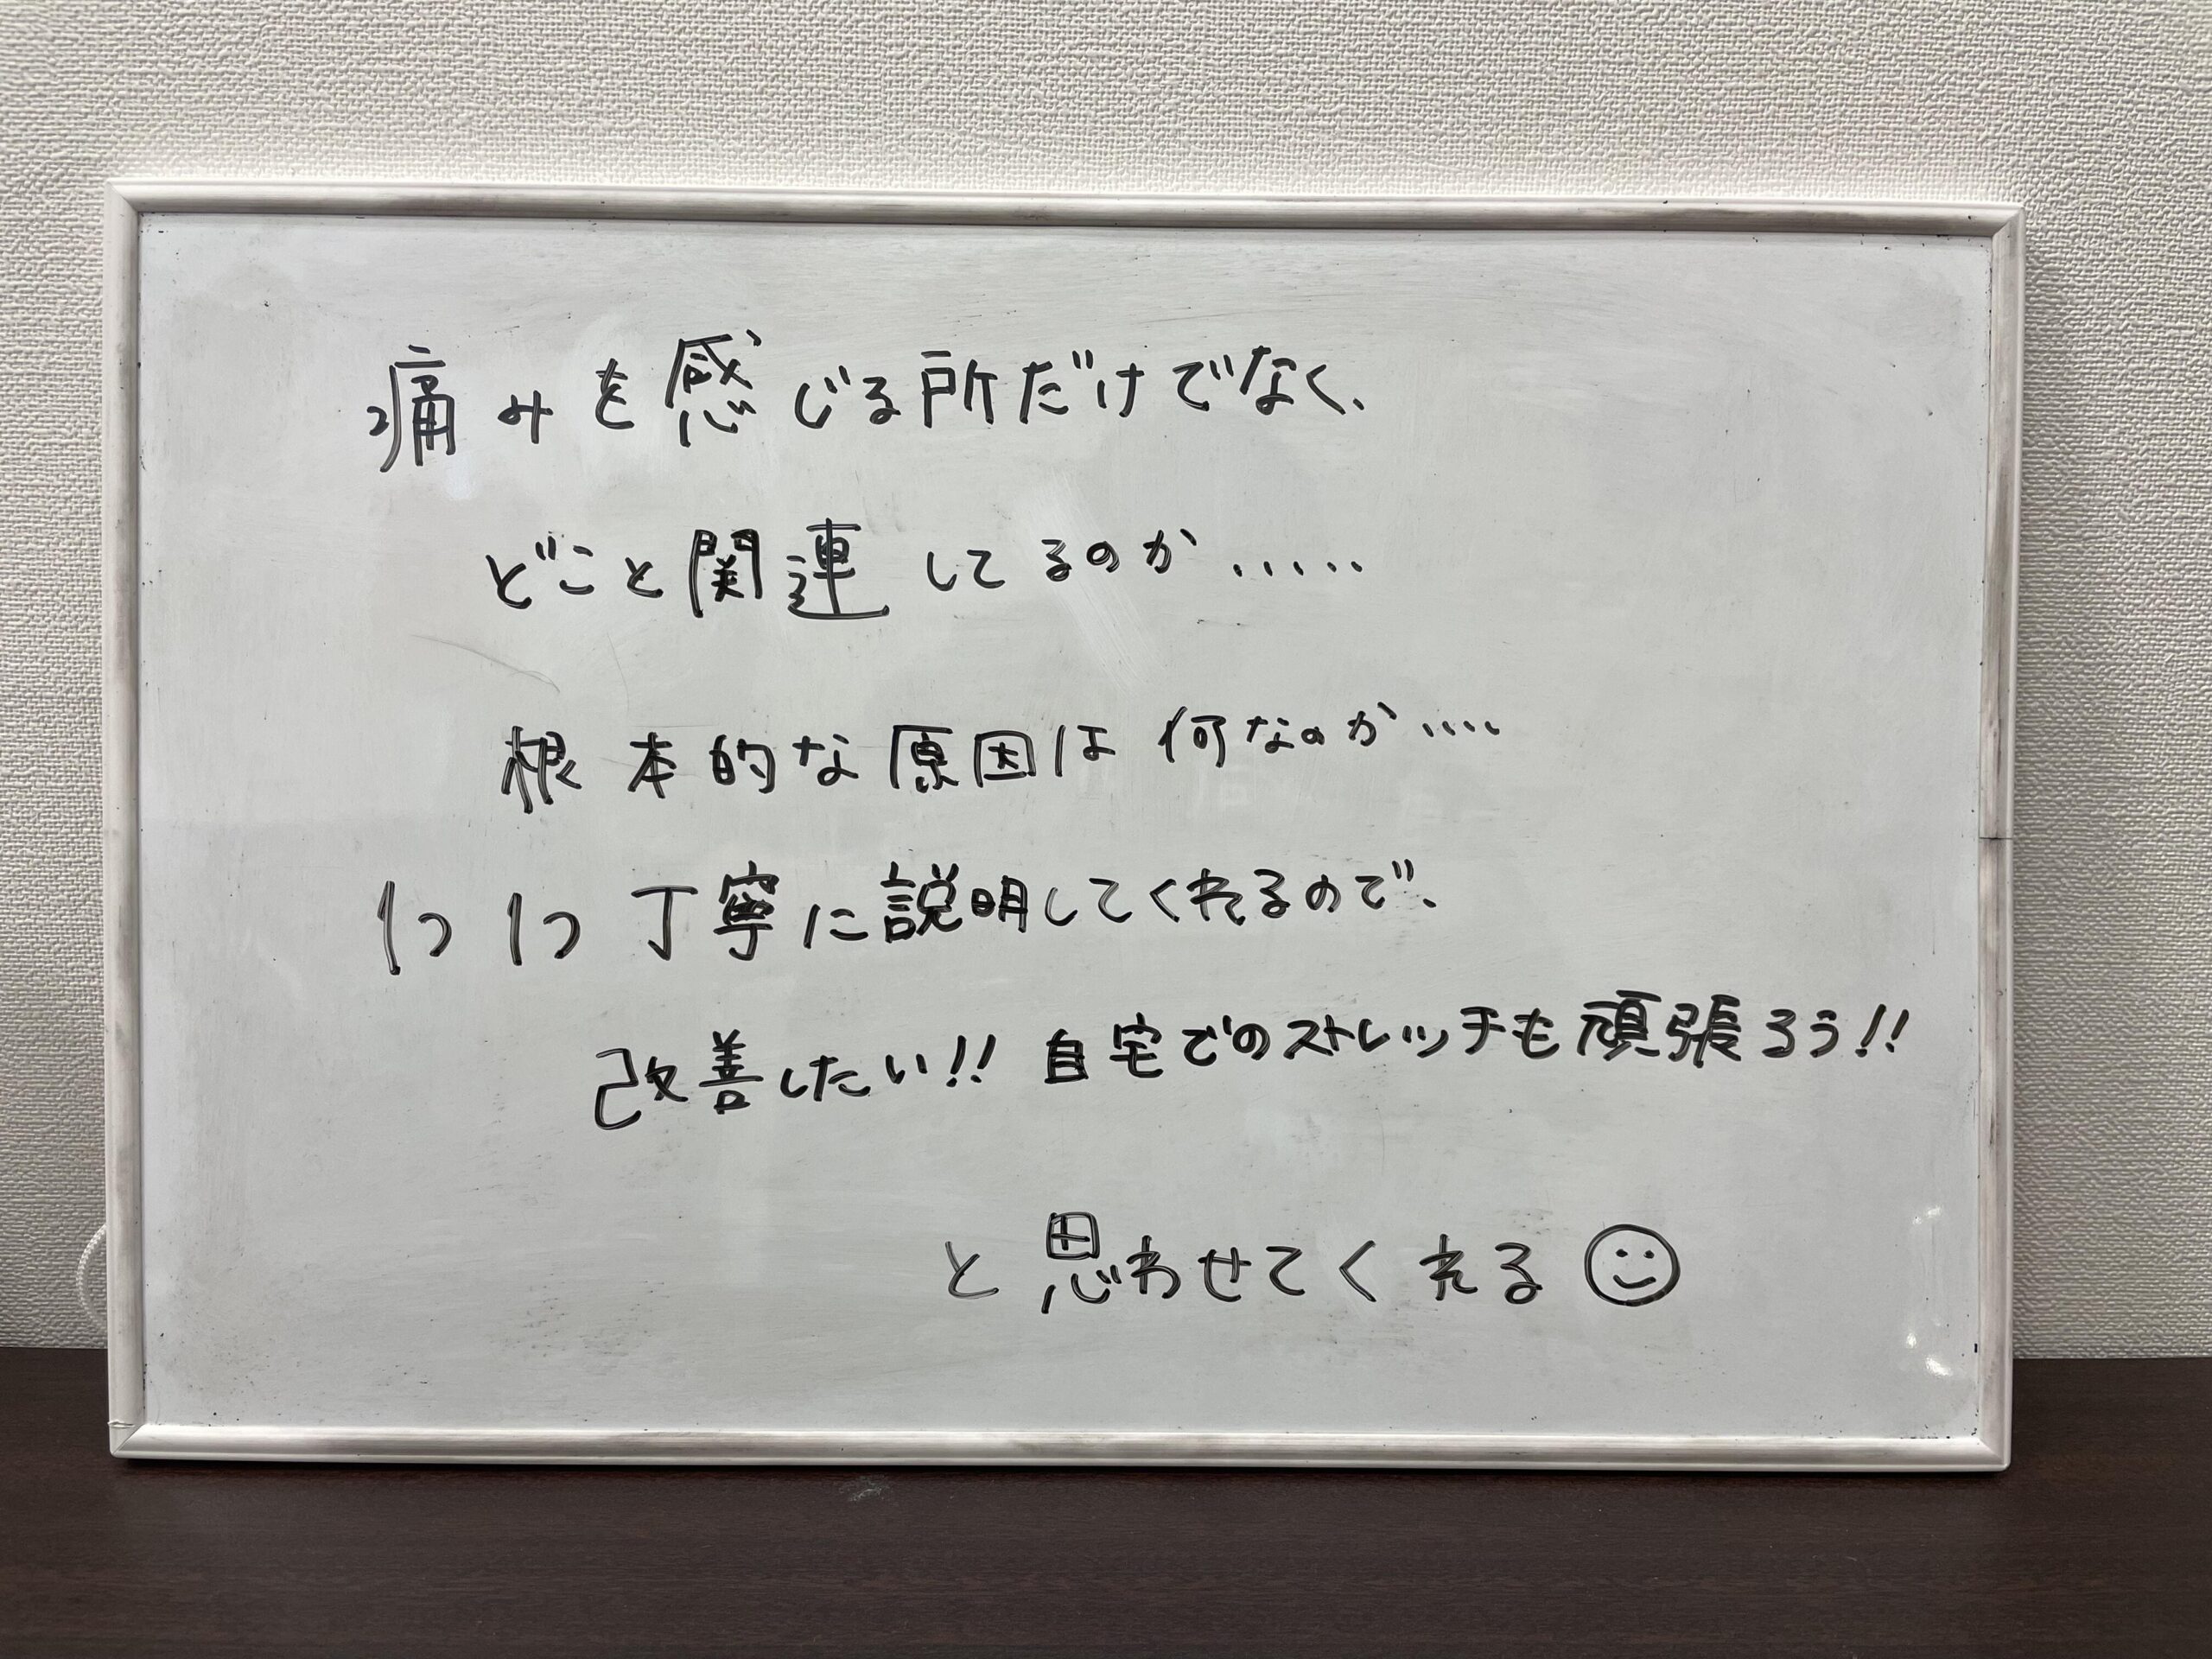 痛みを感じる所だけでなく、
どこと関連してるのか.....
根本的な原因は何なのか....
1つ1つ丁寧に説明してくれるので、
改善したい!! 自宅でのストレッチも頑張るう!!
と思わせてくれる☺